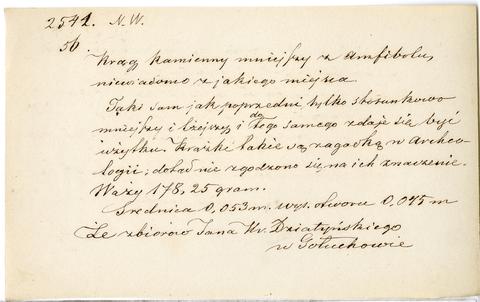 2541. N. W.
56.
Krąg kamienny mniejszy z Amfibolu,
niewiadomo z jakiego miejsca.
Taki sam jak poprzedni, tylko stosunkowo
mniejszy i lżejszy, i do tego samego zdaje się być
użytku. Krążki takie są zagadką w Archeo-
logii; dotąd nie zgodzono się na ich znaczenie.
Waży 178,25 gram.
Średnica 0,053 m. wys. otworu 0,045 m
Ze zbiorów Jana Hr. Działyńskiego
w Gołuchowie